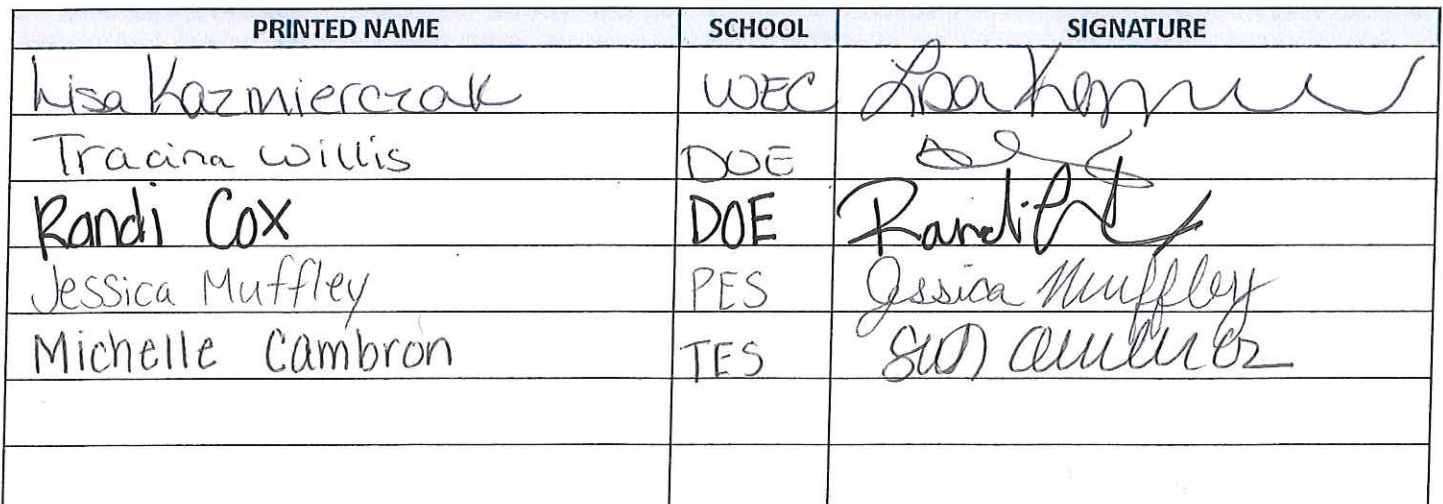 PRINTED NAME SCHOOL SIGNATURE
Lisa Kazmierczak WEC Lisa
Tracina Willis DOE
Randi Cox DOE Randi
Jessica Muffley PES Jessica Muffley
Michelle Cambron TES